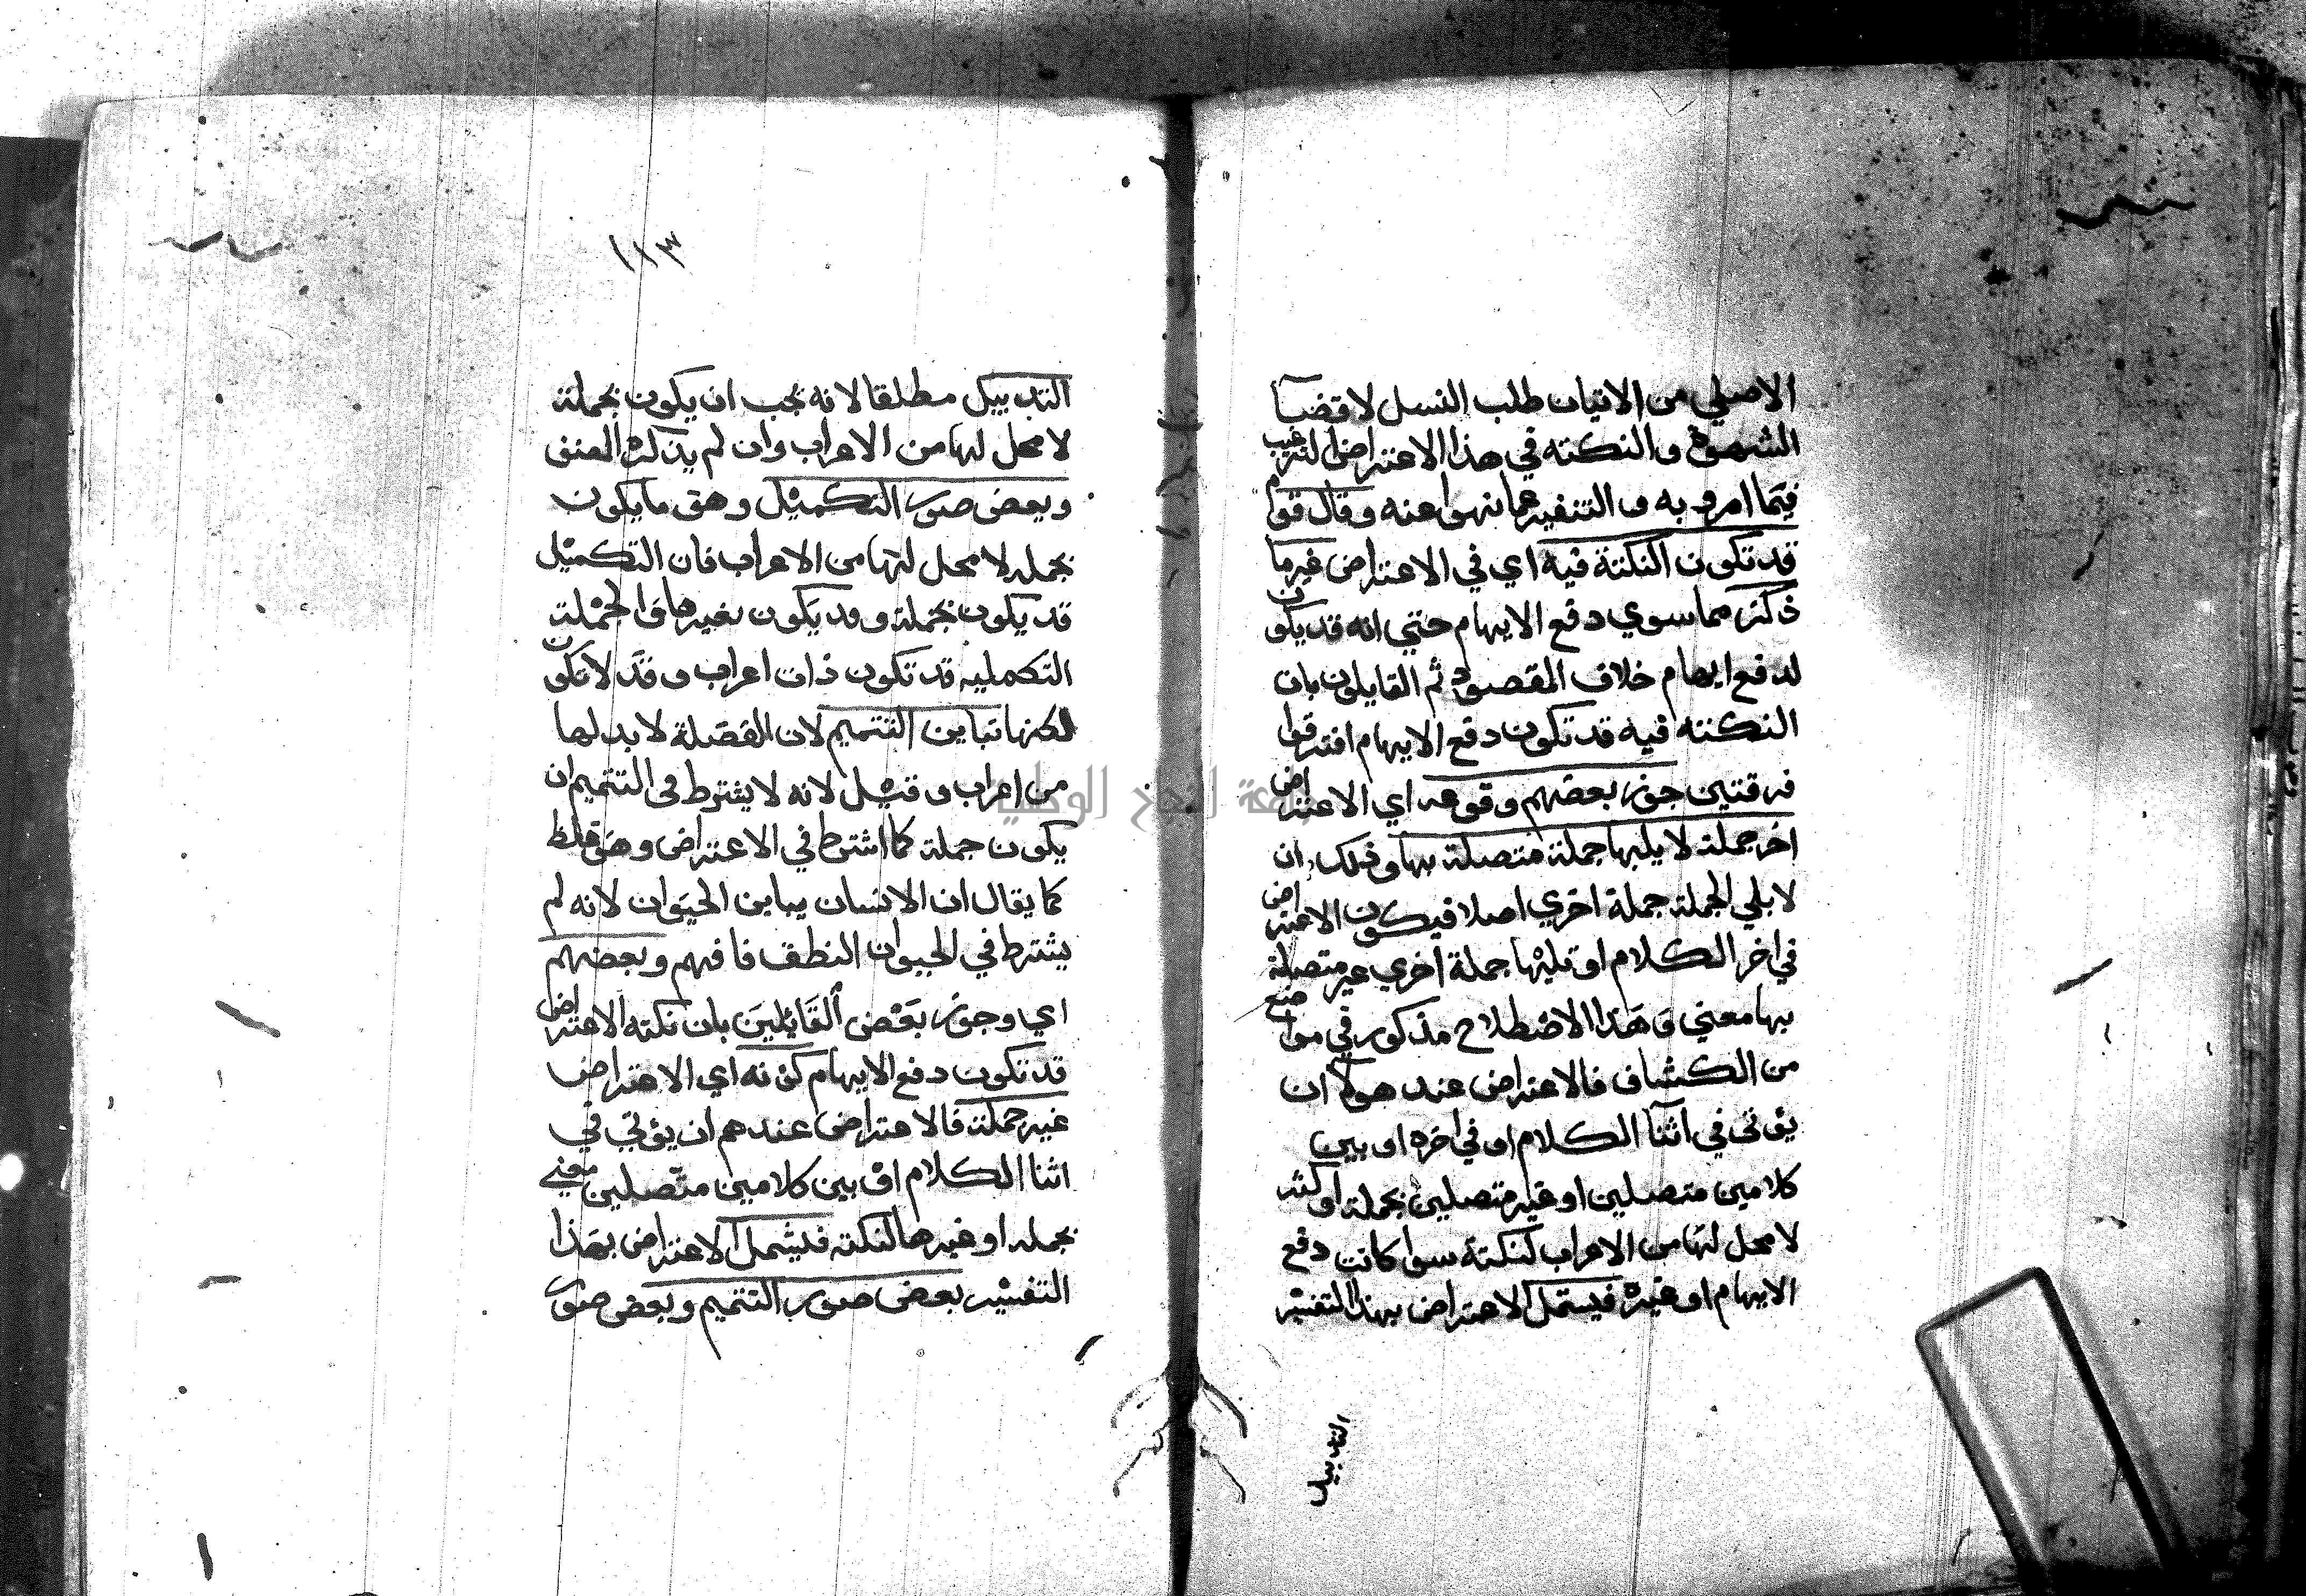 الاصلي من الاتيان طلب النسل لا قضآ
الشهوة والنكته في هذا الاعتراض الترغيب
فيما امرو به والتنفير عما نهوا عنه وقال قوم
قد تكون النكتة فيه اي في الاعتراض غير ما
ذكر مما سوي دفع الايهام حتي انه قد يكون
لدفع ايهام خلاف المقصود ثم القايلون بان
النكته فيه قد تكون دفع الايهام افترقوا
فرقتين جوز بعضهم وقوعه اي الاعتراض
اخر جملة لا يليها جملة متصلة بها وذلك ان
لا يلي الجملة جملة اخري اصلا فيكون الاعتراض
في اخر الكلام او تليها جملة اخري غير متصلة
بها معني وهذا الاصطلاح مذكور في مواضع
من الكشاف فالاعتراض عند هولآ ان
يؤتي في اثنآ الكلام او في اخره او بين
كلامين متصلين او غير متصلين بجملة او اكثر
لا محل لها من الاعراب لنكتة سوا كانت دفع
الايهام او غيره فيشمل الاعتراض بهذا التفسير
التذييل
١١٣
التذييل مطلقا لانه يجب ان يكون بجملة
لا محل لها من الاعراب وان لم يذكره المصنف
وبعض صور التكميل وهو ما يكون
بجمله لا محل لها من الاعراب فان التكميل
قد يكون بجملة وقد يكون بغيرها والجملة
التكمليه قد تكون ذات اعراب وقد لا تكون
لكنها تباين التتميم لان الفضلة لا بد لها
من اعراب وقيل لانه لا يشترط في التتميم ان
يكون جملة كما اشترط في الاعتراض وهو غلط
كما يقال ان الانسان يباين الحيوان لانه لم
يشترط في الحيوان النطق فافهم وبعضهم
اي وجوز بعض القايلين بان نكته الاعتراض
قد تكون دفع الايهام كونه اي الاعتراض
غير جملة فالاعتراض عندهم ان يؤتي في
اثنا الكلام او بين كلامين متصلين معني
بجمله او غيرها لنكته فيشمل الاعتراض بهذا
التفسير بعض صور التتميم وبعض صور
جامعة النجاح الوطنية